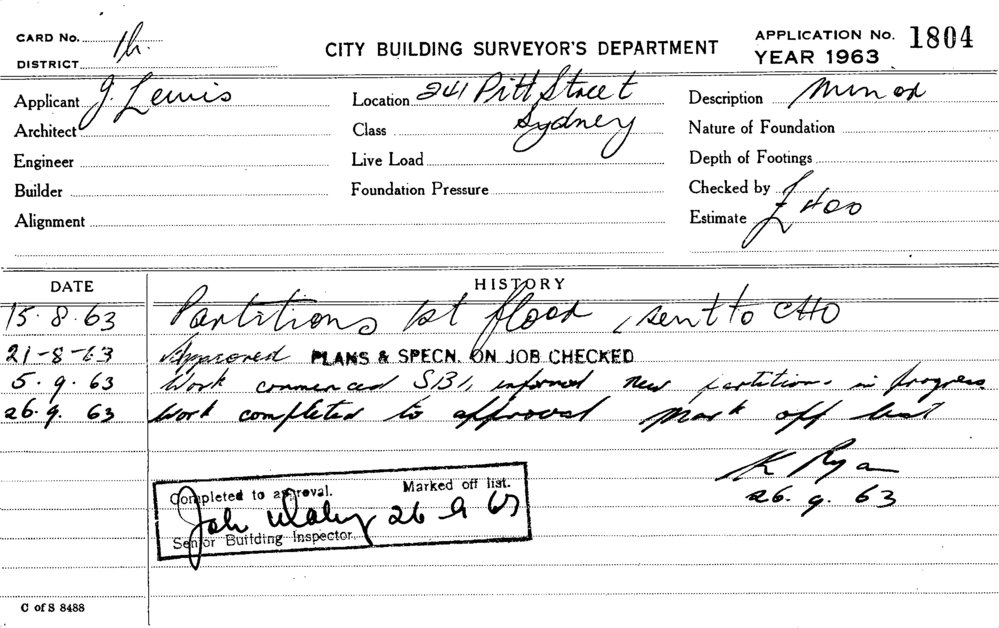 CARD No.
DISTRICT 1h.
CITY BUILDING SURVEYOR'S DEPARTMENT
APPLICATION No. 1804
YEAR 1963
Applicant J. Lewis
Location 241 Pitt Street
Sydney
Description Minor
Architect
Class
Nature of Foundation
Engineer
Live Load
Depth of Footings
Builder
Foundation Pressure
Checked by
Alignment
Estimate £400
DATE HISTORY
15.8.63 Partitions 1st floor, sent to CHO
21-8-63 Approved PLANS & SPECN. ON JOB CHECKED
5.9.63 Work commenced SBI, informed new partitions in progress
26.9.63 Work completed to approval Mark off list
K Ryan
26.9.63
Completed to approval. Marked off list.
John 26 9 63
Senior Building Inspector.
C of S 8488